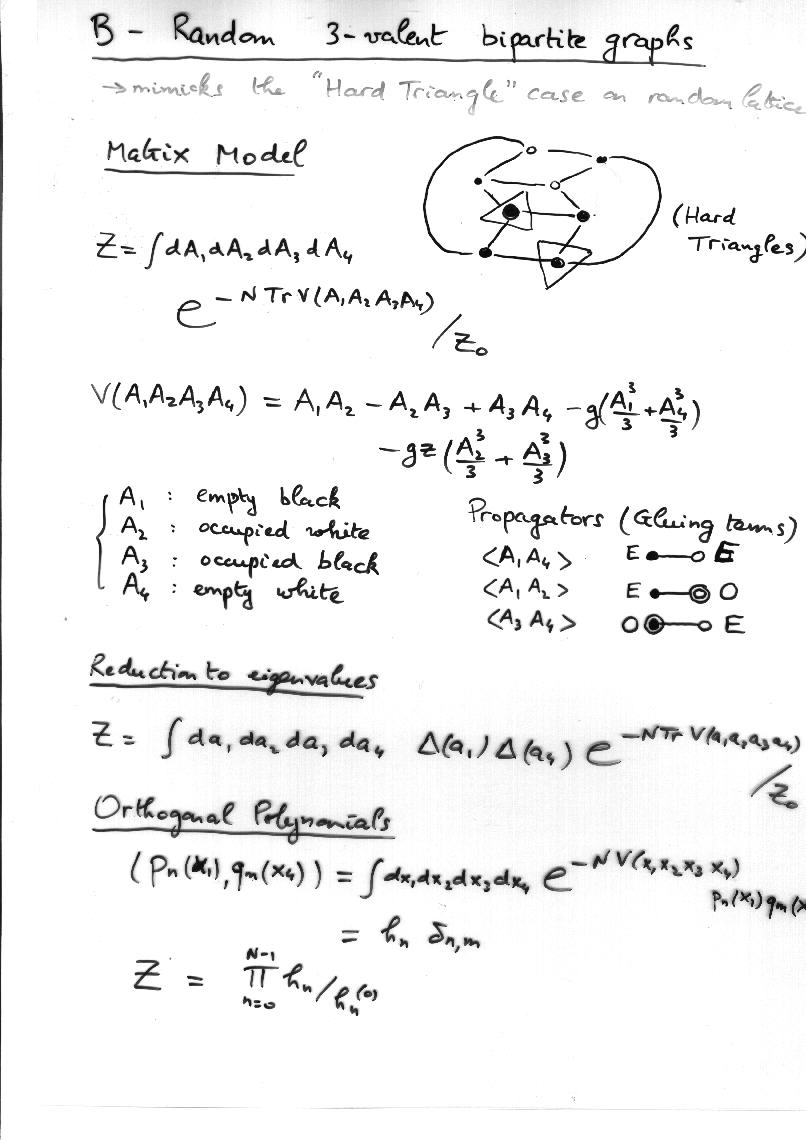 B - Random 3-valent bipartite graphs
→ mimicks the "Hard Triangle" case on random lattice
Matrix Model
(Hard Triangles)
Z = ∫ dA₁ dA₂ dA₃ dA₄
e^{-N Tr V(A₁A₂A₃A₄)} / Z₀
V(A₁A₂A₃A₄) = A₁A₂ - A₂A₃ + A₃A₄ - g(A₁³/3 + A₄³/3)
- gz (A₂³/3 + A₃³/3)
A₁ : empty black
A₂ : occupied white
A₃ : occupied black
A₄ : empty white
Propagators (Gluing terms)
<A₁A₄> E E
<A₁A₂> E O
<A₃A₄> O E
Reduction to eigenvalues
Z = ∫ da₁ da₂ da₃ da₄ Δ(a₁) Δ(a₄) e^{-N Tr V(a₁a₂a₃a₄)} / Z₀
Orthogonal Polynomials
(pₙ(x₁), qₘ(x₄)) = ∫ dx₁ dx₂ dx₃ dx₄ e^{-N V(x₁x₂x₃x₄)} pₙ(x₁) qₘ(x
= hₙ δₙ,ₘ
Z = ∏_{n=0}^{N-1} hₙ / hₙ^{(0)}